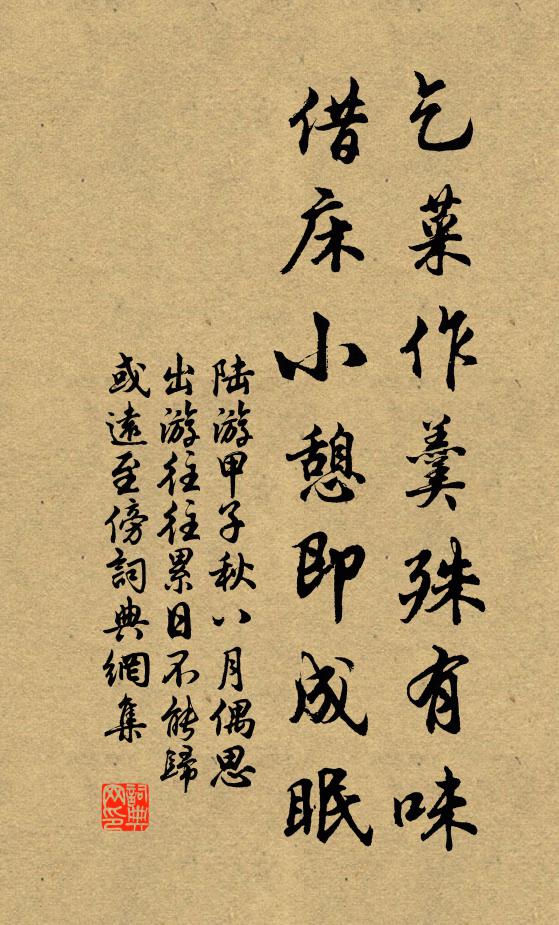 乞菜作羹殊有味
借床小憩即成眠
陆游甲子秋八月偶思
出游往往累日不能歸
或遠至傍詞典網集
詞典
网印